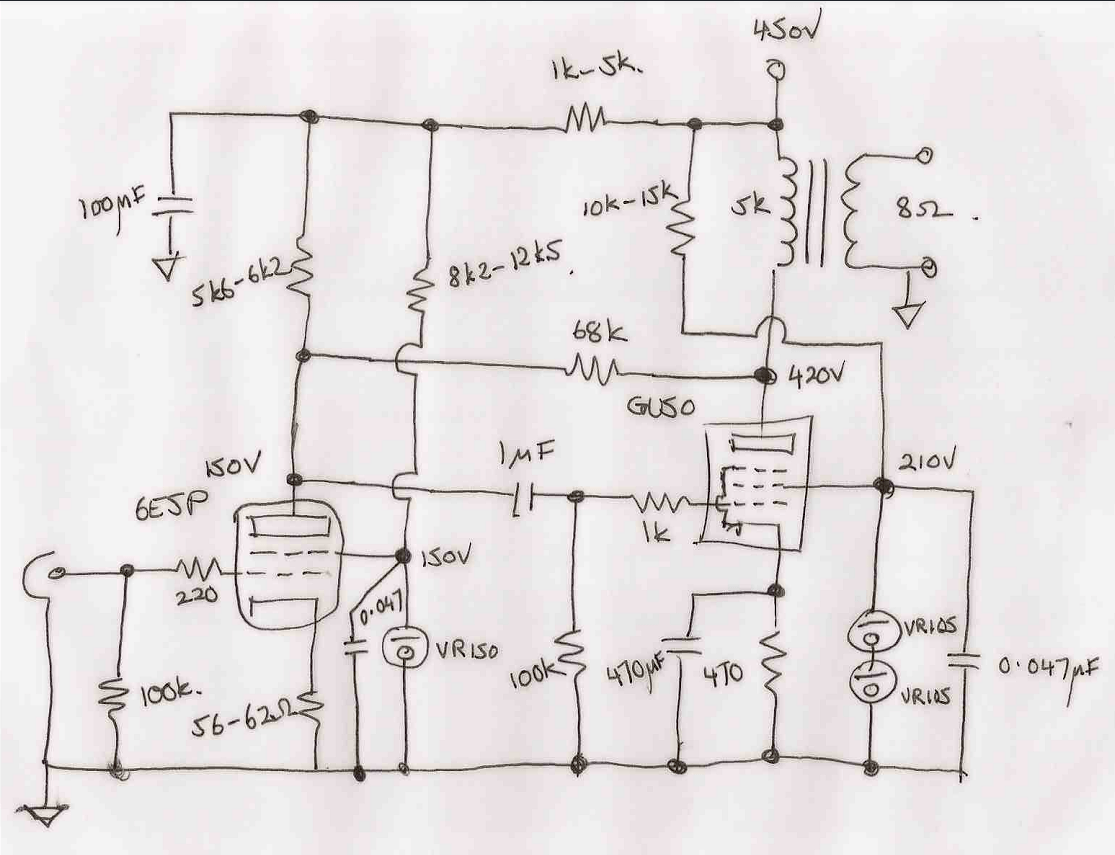 450V
1k-5k.
100µF
5k6-6k2
8k2-12k5.
10k-15k
5k
8Ω.
68k
420V
GU50
150V
1µF
210V
6EJP
1k
150V
220
0.047
VR150
VR105
100k.
56-62Ω
100k
470µF
470
VR105
0.047µF